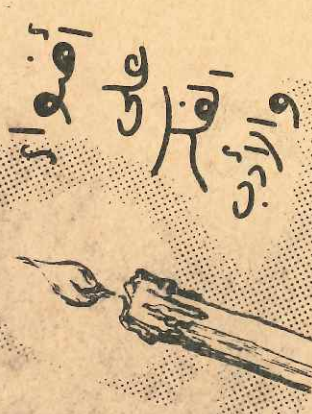 أضواء
على
الفكر
والأدب